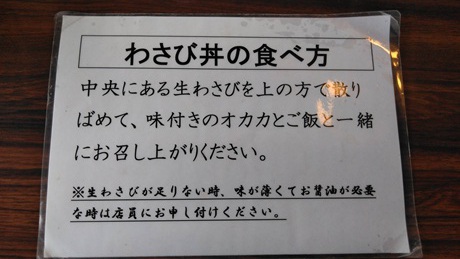 わさび丼の食べ方
中央にある生わさびを上の方で散り
ばめて、味付きのオカカとご飯と一緒
にお召し上がりください。
※生わさびが足りない時、味が薄くてお醤油が必要
な時は店員にお申し付けください。